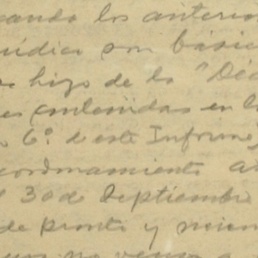 cando los anterio
ídica son básic
s hizo de la "Dé
es contenidas en l
o 6º. de este Informe,
cordinamiento a
l 30 de Septiembre
de pronto y